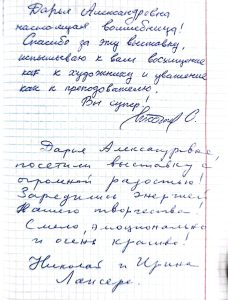 Дарья Александровна
настоящая волшебница!
Спасибо за эту выставку,
испытываю к вам восхищение
как к художнику и уважение
как к преподователю.
Вы супер!
Дарья Александровна,
посетили выставку с
огромной радостью!
Зарядились энергией
Вашего творчества
Смело, эмоционально
и очень красиво!
Николай и Ирина
Лансере.